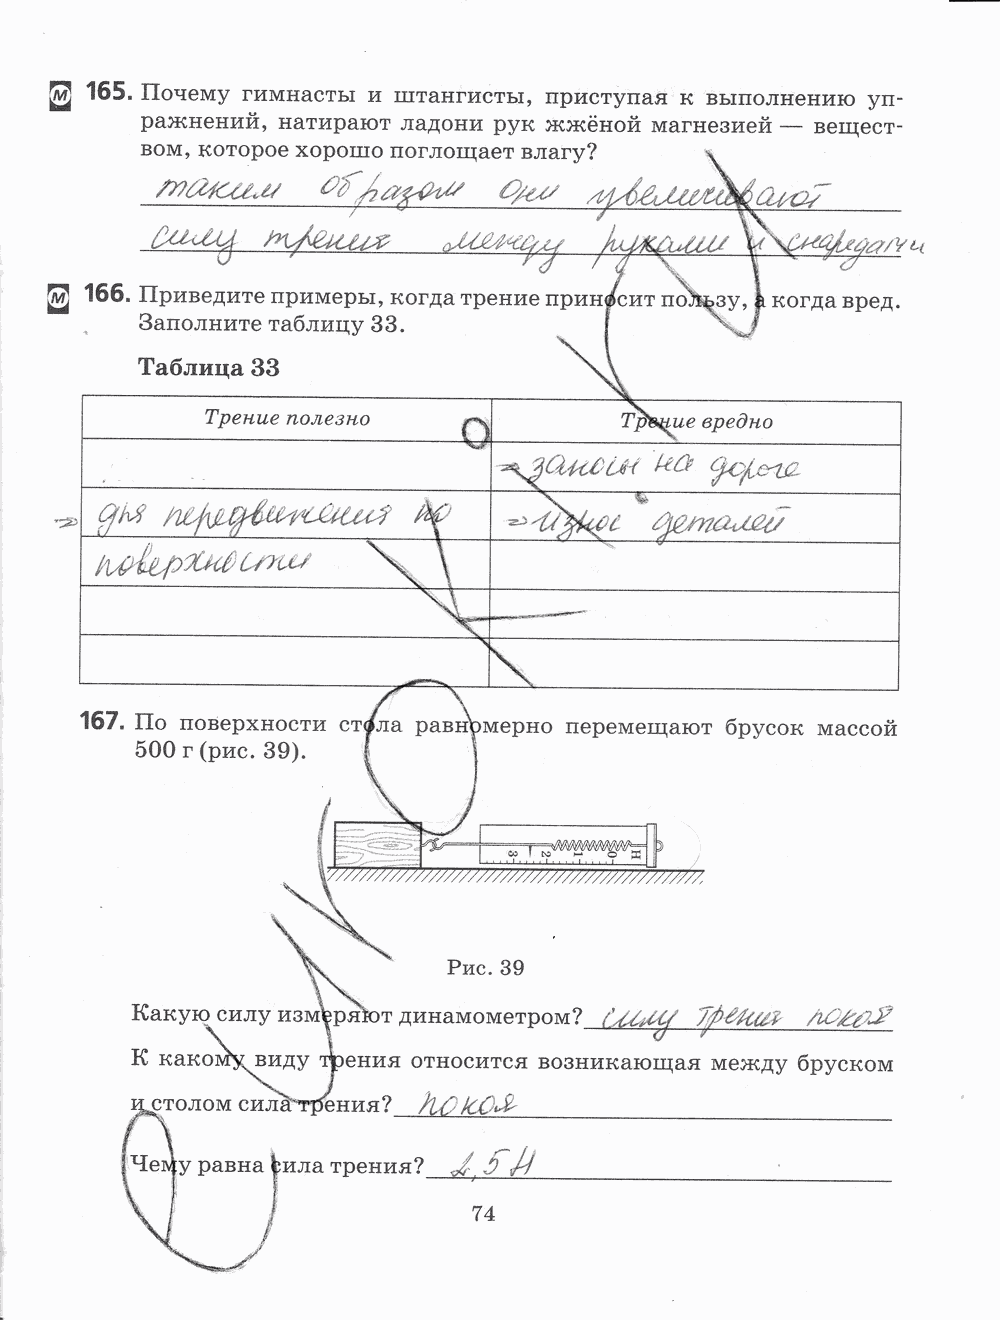 М 165. Почему гимнасты и штангисты, приступая к выполнению уп-
ражнений, натирают ладони рук жжёной магнезией — вещест-
вом, которое хорошо поглощает влагу?
таким образом они увеличивают
силу трения между руками и снарядами
М 166. Приведите примеры, когда трение приносит пользу, а когда вред.
Заполните таблицу 33.
Таблица 33
Трение полезно Трение вредно
заносы на дороге
для передвижения по износ деталей
поверхности
167. По поверхности стола равномерно перемещают брусок массой
500 г (рис. 39).
3 2 1 0 Н
Рис. 39
Какую силу измеряют динамометром? силу трения покоя
К какому виду трения относится возникающая между бруском
и столом сила трения? покоя
Чему равна сила трения? 2,5 Н
74